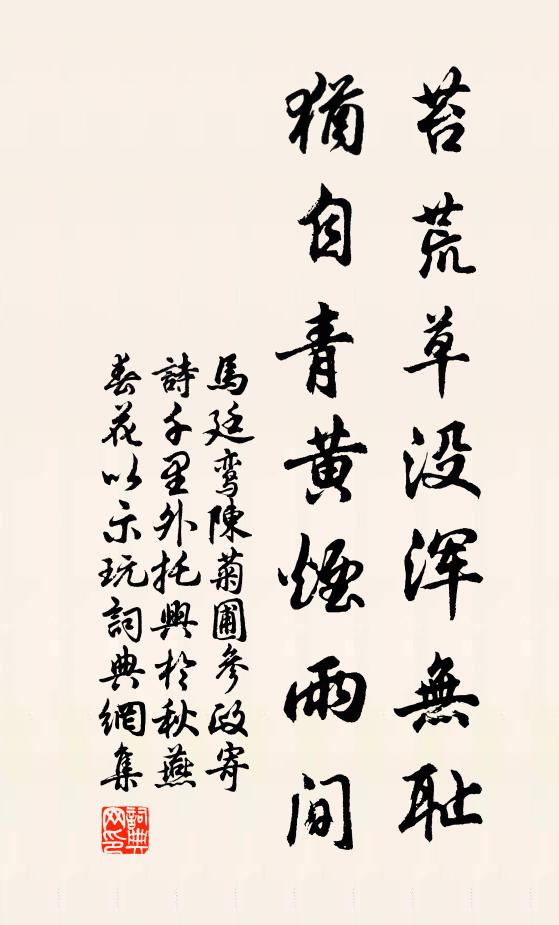 苔荒草没渾無耻
猶自青黄煙雨間
馬廷鸞陳菊圃參政寄
詩千里外托興於秋燕
春花以示玩詞典網集
詞典
网印